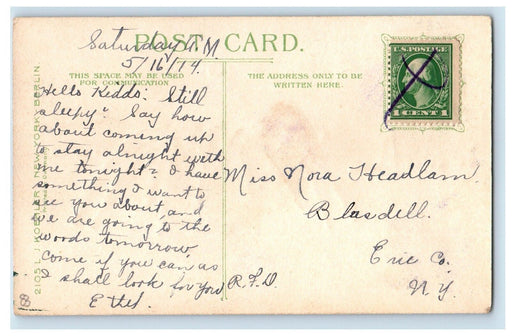 POST CARD.
Saturday A.M
5/16/14.
THIS SPACE MAY BE USED
FOR COMMUNICATION
Hello Kiddo: Still
sleepy? Say how
about coming up
to stay alnight with
me tonight? I have
something I want to
see you about, and
we are going to the
woods tomorrow,
come if you can as
I shall look for you
Ethel.
THE ADDRESS ONLY TO BE
WRITTEN HERE.
U.S. POSTAGE
1 CENT 1
Miss Nora Headlam
Blasdell.
Erie Co.
N.Y.
R.F.D.
2105 L.J. KOEHLER, NEW YORK-BERLIN